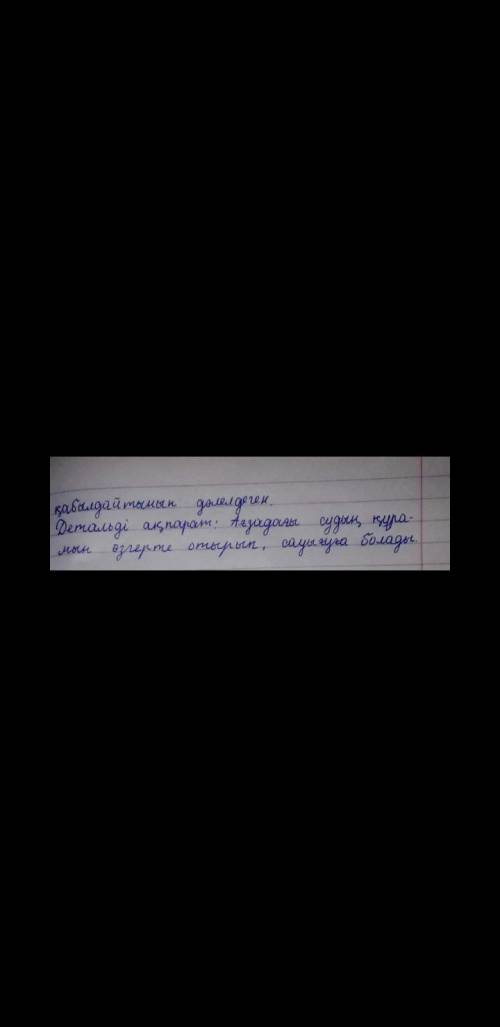 қабылдайтынын дәлелдеген.
Детальді ақпарат: Ағзадағы судың құра-
мын өзгерте отырып, сауығуға болады.